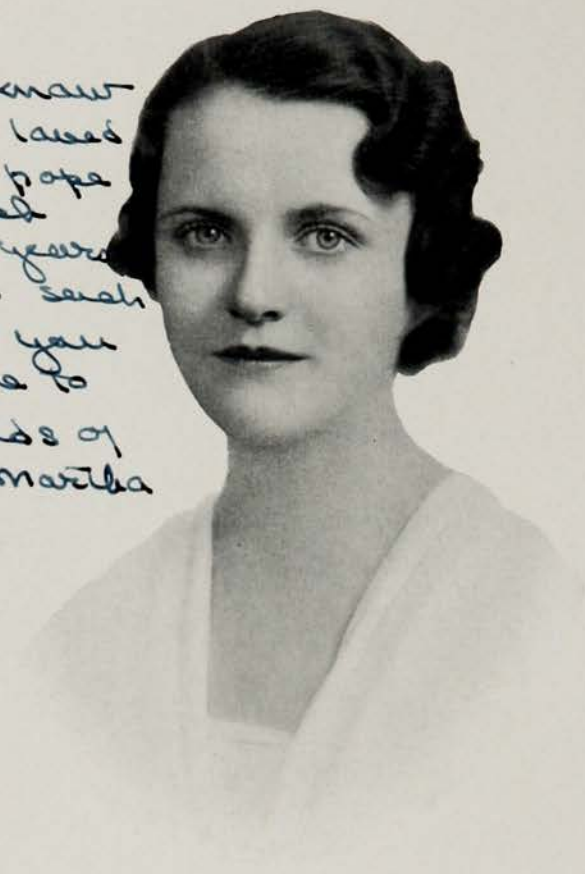 know
loved
hope
years
such
you
to
of
Martha